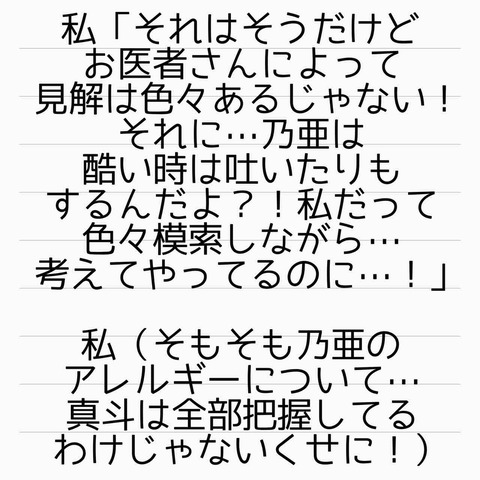 私「それはそうだけど
お医者さんによって
見解は色々あるじゃない！
それに…乃亜は
酷い時は吐いたりも
するんだよ？！私だって
色々模索しながら…
考えてやってるのに…！」
私（そもそも乃亜の
アレルギーについて…
真斗は全部把握してる
わけじゃないくせに！）